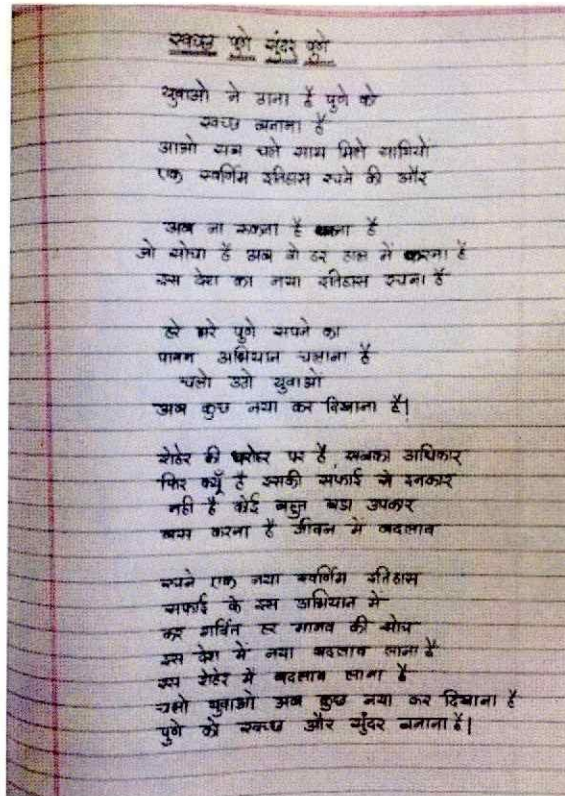 स्वच्छ पुणे सुंदर पुणे
युवाओ ने ठाना है पुणे को
स्वच्छ बनाना है
आओ सब चले साथ मिले साथियो
एक स्वर्णिम इतिहास रचने की और
अब ना रुकना है थकना है
जो सोचा है अब वो हर हाल में करना है
इस देश का नया इतिहास रचना है
हरे भरे पुणे सपने का
पावन अभियान चलाना है
चलो उठो युवाओ
अब कुछ नया कर दिखाना है|
शेहेर की धरोहर पर है, सबका अधिकार
फिर क्यूँ है इसकी सफाई से इनकार
नही है कोई बहुत बडा उपकार
बस करना है जीवन मे बदलाव
रचने एक नया स्वर्णिम इतिहास
सफाई के इस अभियान मे
कर गर्वित हर मानव की सोच
इस देश में नया बदलाव लाना है
इस शेहेर में बदलाव लाना है
चलो युवाओ अब कुछ नया कर दिखाना है
पुणे को स्वच्छ और सुंदर बनाना है|